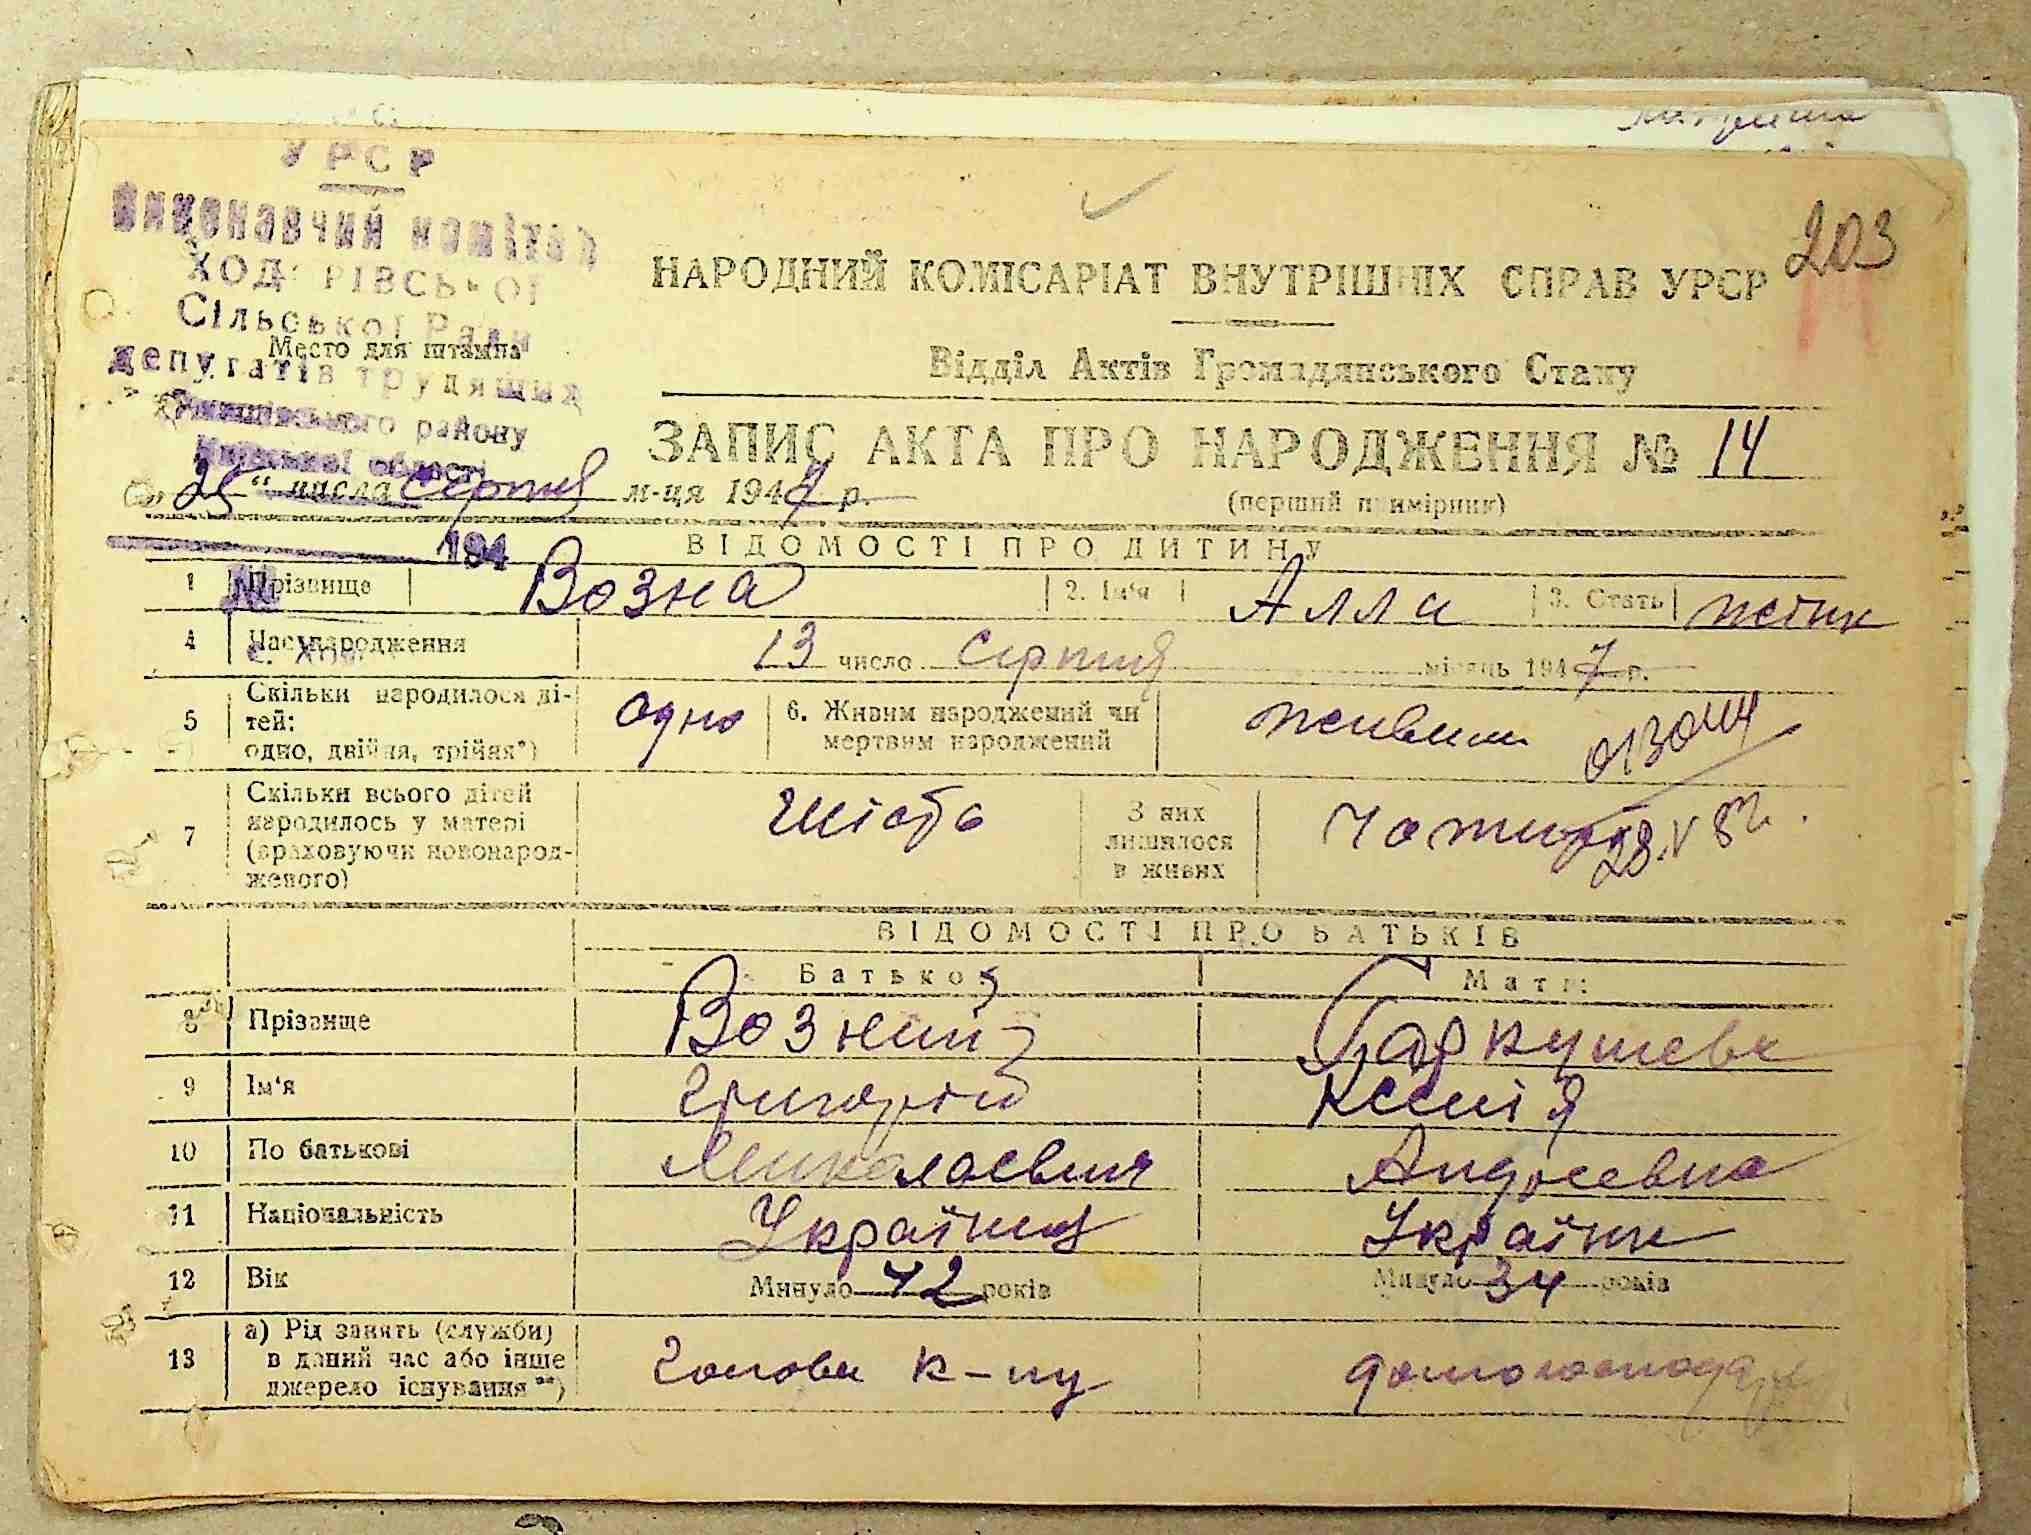 УРСР
Виконавчий комітет
ХОДОРІВСЬКОЇ
Сільської Ради
депутатів трудящих
району
області
Место для штампа
203
НАРОДНИЙ КОМІСАРІАТ ВНУТРІШНІХ СПРАВ УРСР
Відділ Актів Громадянського Стану
ЗАПИС АКТА ПРО НАРОДЖЕННЯ № 14
(перший примірник)
„25“ числа серпня м-ця 1947 р.
194
ВІДОМОСТІ ПРО ДИТИНУ
1 Прізвище Возна 2. Ім'я Алла 3. Стать жінк
4 Час народження 13 число серпня місяць 1947 р.
5 Скільки народилося ді-
тей:
одно, двійня, трійня*)
одно
6. Живим народжений чи
мертвим народжений
живим
7 Скільки всього дітей
народилось у матері
(враховуючи новонарод-
женого)
Шість
З них
лишилося
в живих
Чотири
28.V 82.
ВІДОМОСТІ ПРО БАТЬКІВ
Батько: Мати:
8 Прізвище Возний
9 Ім'я Григорій Ксенія
10 По батькові Миколаєвич Андреевна
11 Національність Українец Українк
12 Вік Минуло 42 років Минуло 34 років
13 а) Рід занять (служби)
в даний час або інше
джерело існування**)
Голова к-пу домогосподар